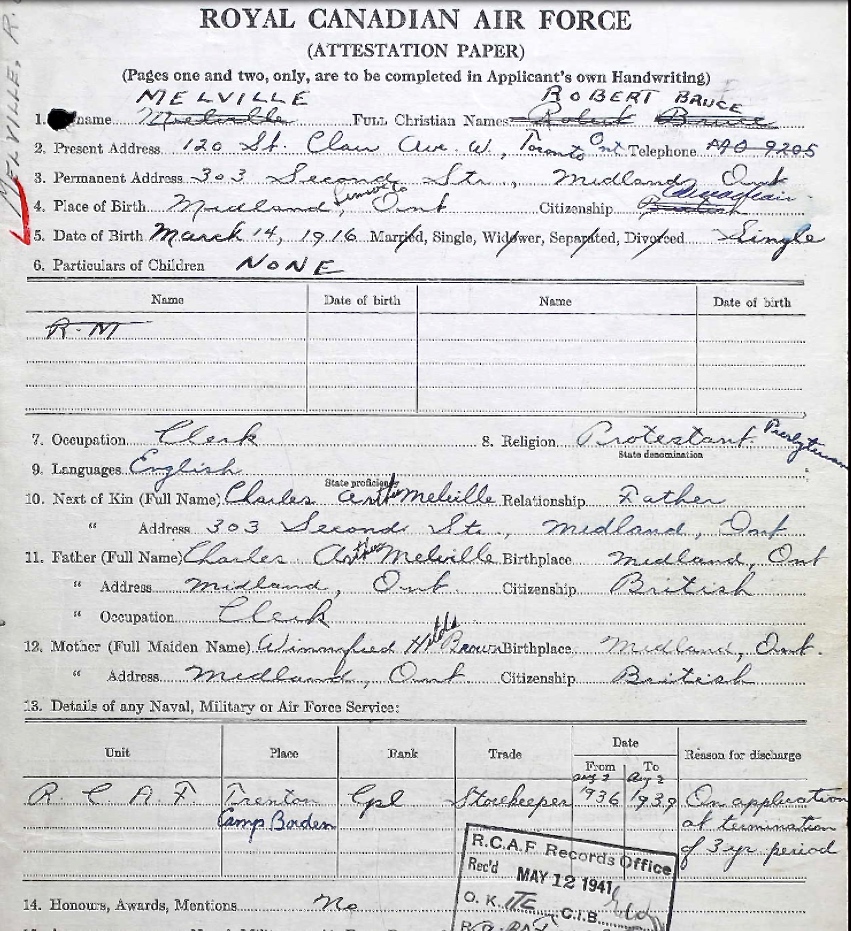 ROYAL CANADIAN AIR FORCE
(ATTESTATION PAPER)
(Pages one and two, only, are to be completed in Applicant's own Handwriting)
MELVILLE ROBERT BRUCE
1. name Melville FULL Christian Names Robert Bruce
MELVILLE, R.
2. Present Address 120 St. Clair Ave. W., Toronto Ont Telephone 9205
3. Permanent Address 303 Second Str., Midland, Ont
Canadian
4. Place of Birth Midland, Simcoe Co Ont Citizenship British
5. Date of Birth March 14, 1916 Married, Single, Widower, Separated, Divorced Single
6. Particulars of Children NONE
Name Date of birth Name Date of birth
R. M
7. Occupation Clerk 8. Religion Protestant. Presbyterian
State denomination
9. Languages English
State proficiency
10. Next of Kin (Full Name) Charles Arthur Melville Relationship Father
" Address 303 Second Str., Midland, Ont
11. Father (Full Name) Charles Arthur Melville Birthplace Midland, Ont
" Address Midland, Ont. Citizenship British
" Occupation Clerk
12. Mother (Full Maiden Name) Winnifred Hilda Brown Birthplace Midland, Ont.
" Address Midland, Ont Citizenship British
13. Details of any Naval, Military or Air Force Service:
Unit Place Rank Trade Date Reason for discharge
From To
Aug 2 Aug 2
R. C. A. F Trenton Cpl Storekeeper 1936 1939 On application
Camp Borden at termination
of 3 yr. period
R.C.A.F Records Office
Rec'd MAY 12 1941
O. K. C.I.B.
14. Honours, Awards, Mentions No